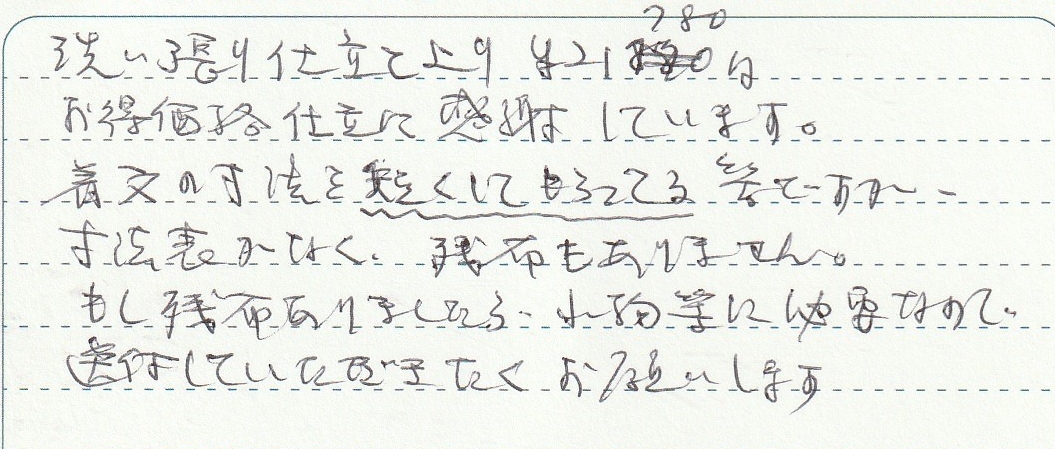 洗い張り仕立て上り ¥21780は
お得価格仕立に感謝しています。
着丈の寸法を短くしてもらってる筈ですが、
寸法表がなく、残布もありません。
もし残布ありましたら、小物等に必要なので、
送付していただきたくお願いします